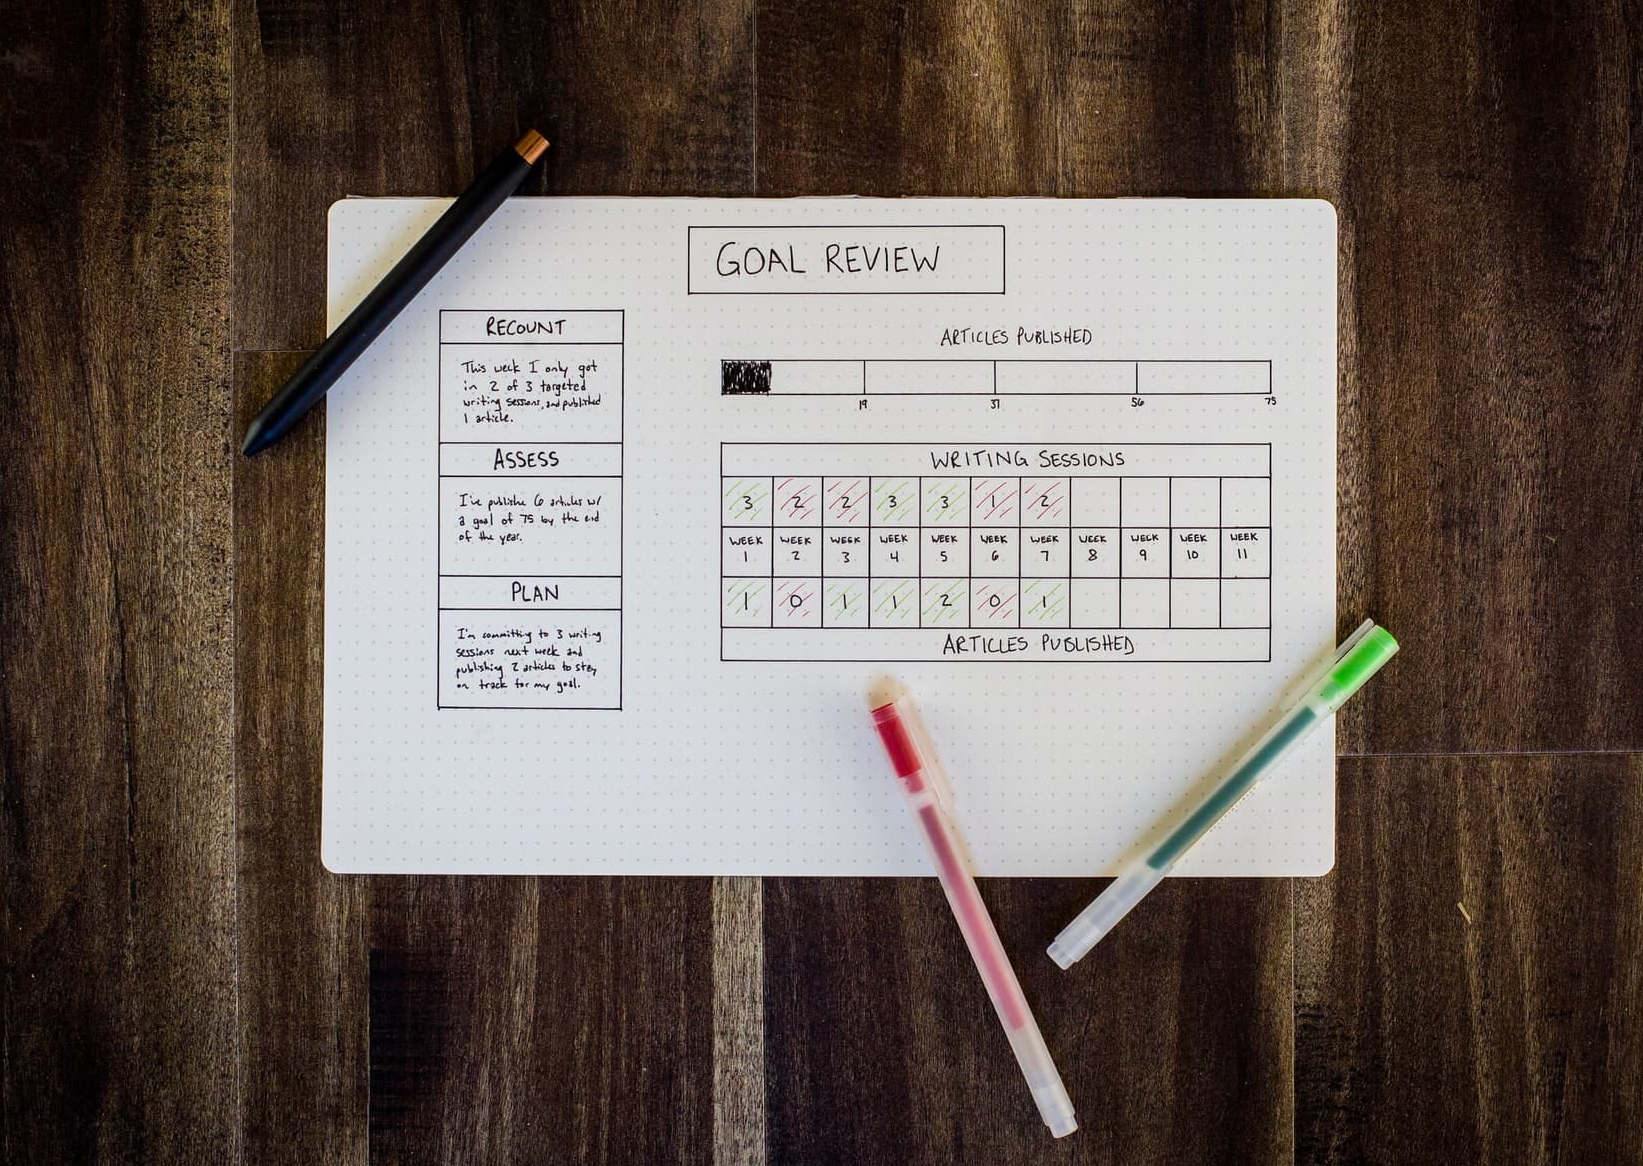 GOAL REVIEW
RECOUNT
This week I only got
in 2 of 3 targeted
writing sessions, and published
1 article.
ASSESS
I've publishe 6 articles w/
a goal of 75 by the end
of the year.
PLAN
I'm committing to 3 writing
sessions next week and
publishing 2 articles to stay
on track for my goal.
ARTICLES PUBLISHED
19 37 56 75
WRITING SESSIONS
3 2 2 3 3 1 2
WEEK WEEK WEEK WEEK WEEK WEEK WEEK WEEK WEEK WEEK WEEK
1 2 3 4 5 6 7 8 9 10 11
1 0 1 1 2 0 1
ARTICLES PUBLISHED